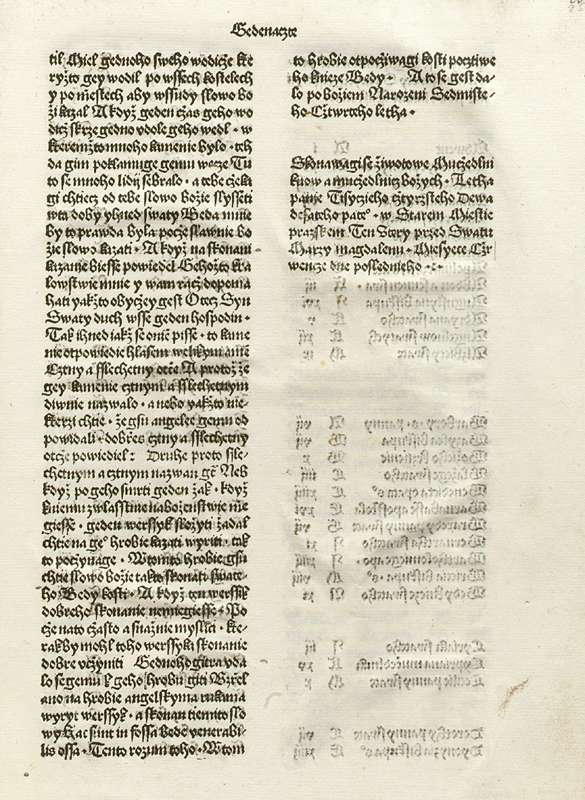 Gedenaczte
til Miel gednoho swcho wodicze kte
ryžto gey wodil po wssech kostelech
y po miestech aby wssudy slowo bo
ži kazal A když geden czas geho wo
dicz skrze gedno vdole geho wedl · w
kteremžto mnoho kamenie bylo · ch
da gim poklamuge gemu wecze Tu
to se mnoho lidij sebralo · a tebe czeka
gi chtiecz od tebe slowo božie slysseti
w tu doby yhned swaty Beda mnie
by to prawda byla pocze slawnie bo
žie slowo kazati · A když na skonani
kazanie biesse powiediel Gehožto kra
lowstwie mnie y wam racž dopoma
hati yakžto obyczey gest Otecz Syn
Swaty duch wsse geden hospodin ·
Tak ihned iakž se onie pissie · to kame
nie otpowiedie hlasem welikym amē
Cztny a sslechetny otče A protož že
gey kamenie cztnym a sslechetnym
diwnie nazwalo · a nebo yakžto nie-
kterzi chtie · že gsu angelee gemu od
powidali · dobřes cztny a sslechetny
otcze powiediel : Druhe proto ssle-
chetnym a cztnym nazwan gē Neb
když po geho smrti geden žak · když
k niemu zwlasstnie nabožienstwie mie
giesse · geden werssyk složyti žadal
chtie na geº hrobie kazati wyriti · tak
to poczynage · W tomto hrobie gsu
chtie slowo božie takto skonati swate-
ho Bedy kosti · A když ten werssik
dobreho skonanie nemiegiesse · Po
cze na to czasto a snažnie mysliti · kte-
rak by mohl toho werssyka skonanie
dobre vcžyniti Gednoho gitra vda
lo se gemu k geho hrobu giti Vzrel
ano na hrobie angelskyma rukama
wyryt werssyk · a skonan tiemito slo
wy Hac sunt in fossa bede venerabi-
lis ossa · Tento rozum toho · W tom
to hrobie otpocziwagi kosti pocztiwe
ho knieze Bedy · A to se gest da-
lo po božiem Narozeni Sedmiste-
ho Cžtwrtcho letha ·
Skonawagi se žiwotowe Muczedlni
kuow a muczedlnicz božych · Letha
panie Tisyczieho cztyrsteho Dewa
desateho pateº · w Starem Miestie
prazskem Ten Utery przed Swatu
Marzy magdalenu · Miesyece Cžr
wencze dne posledneho ·:·